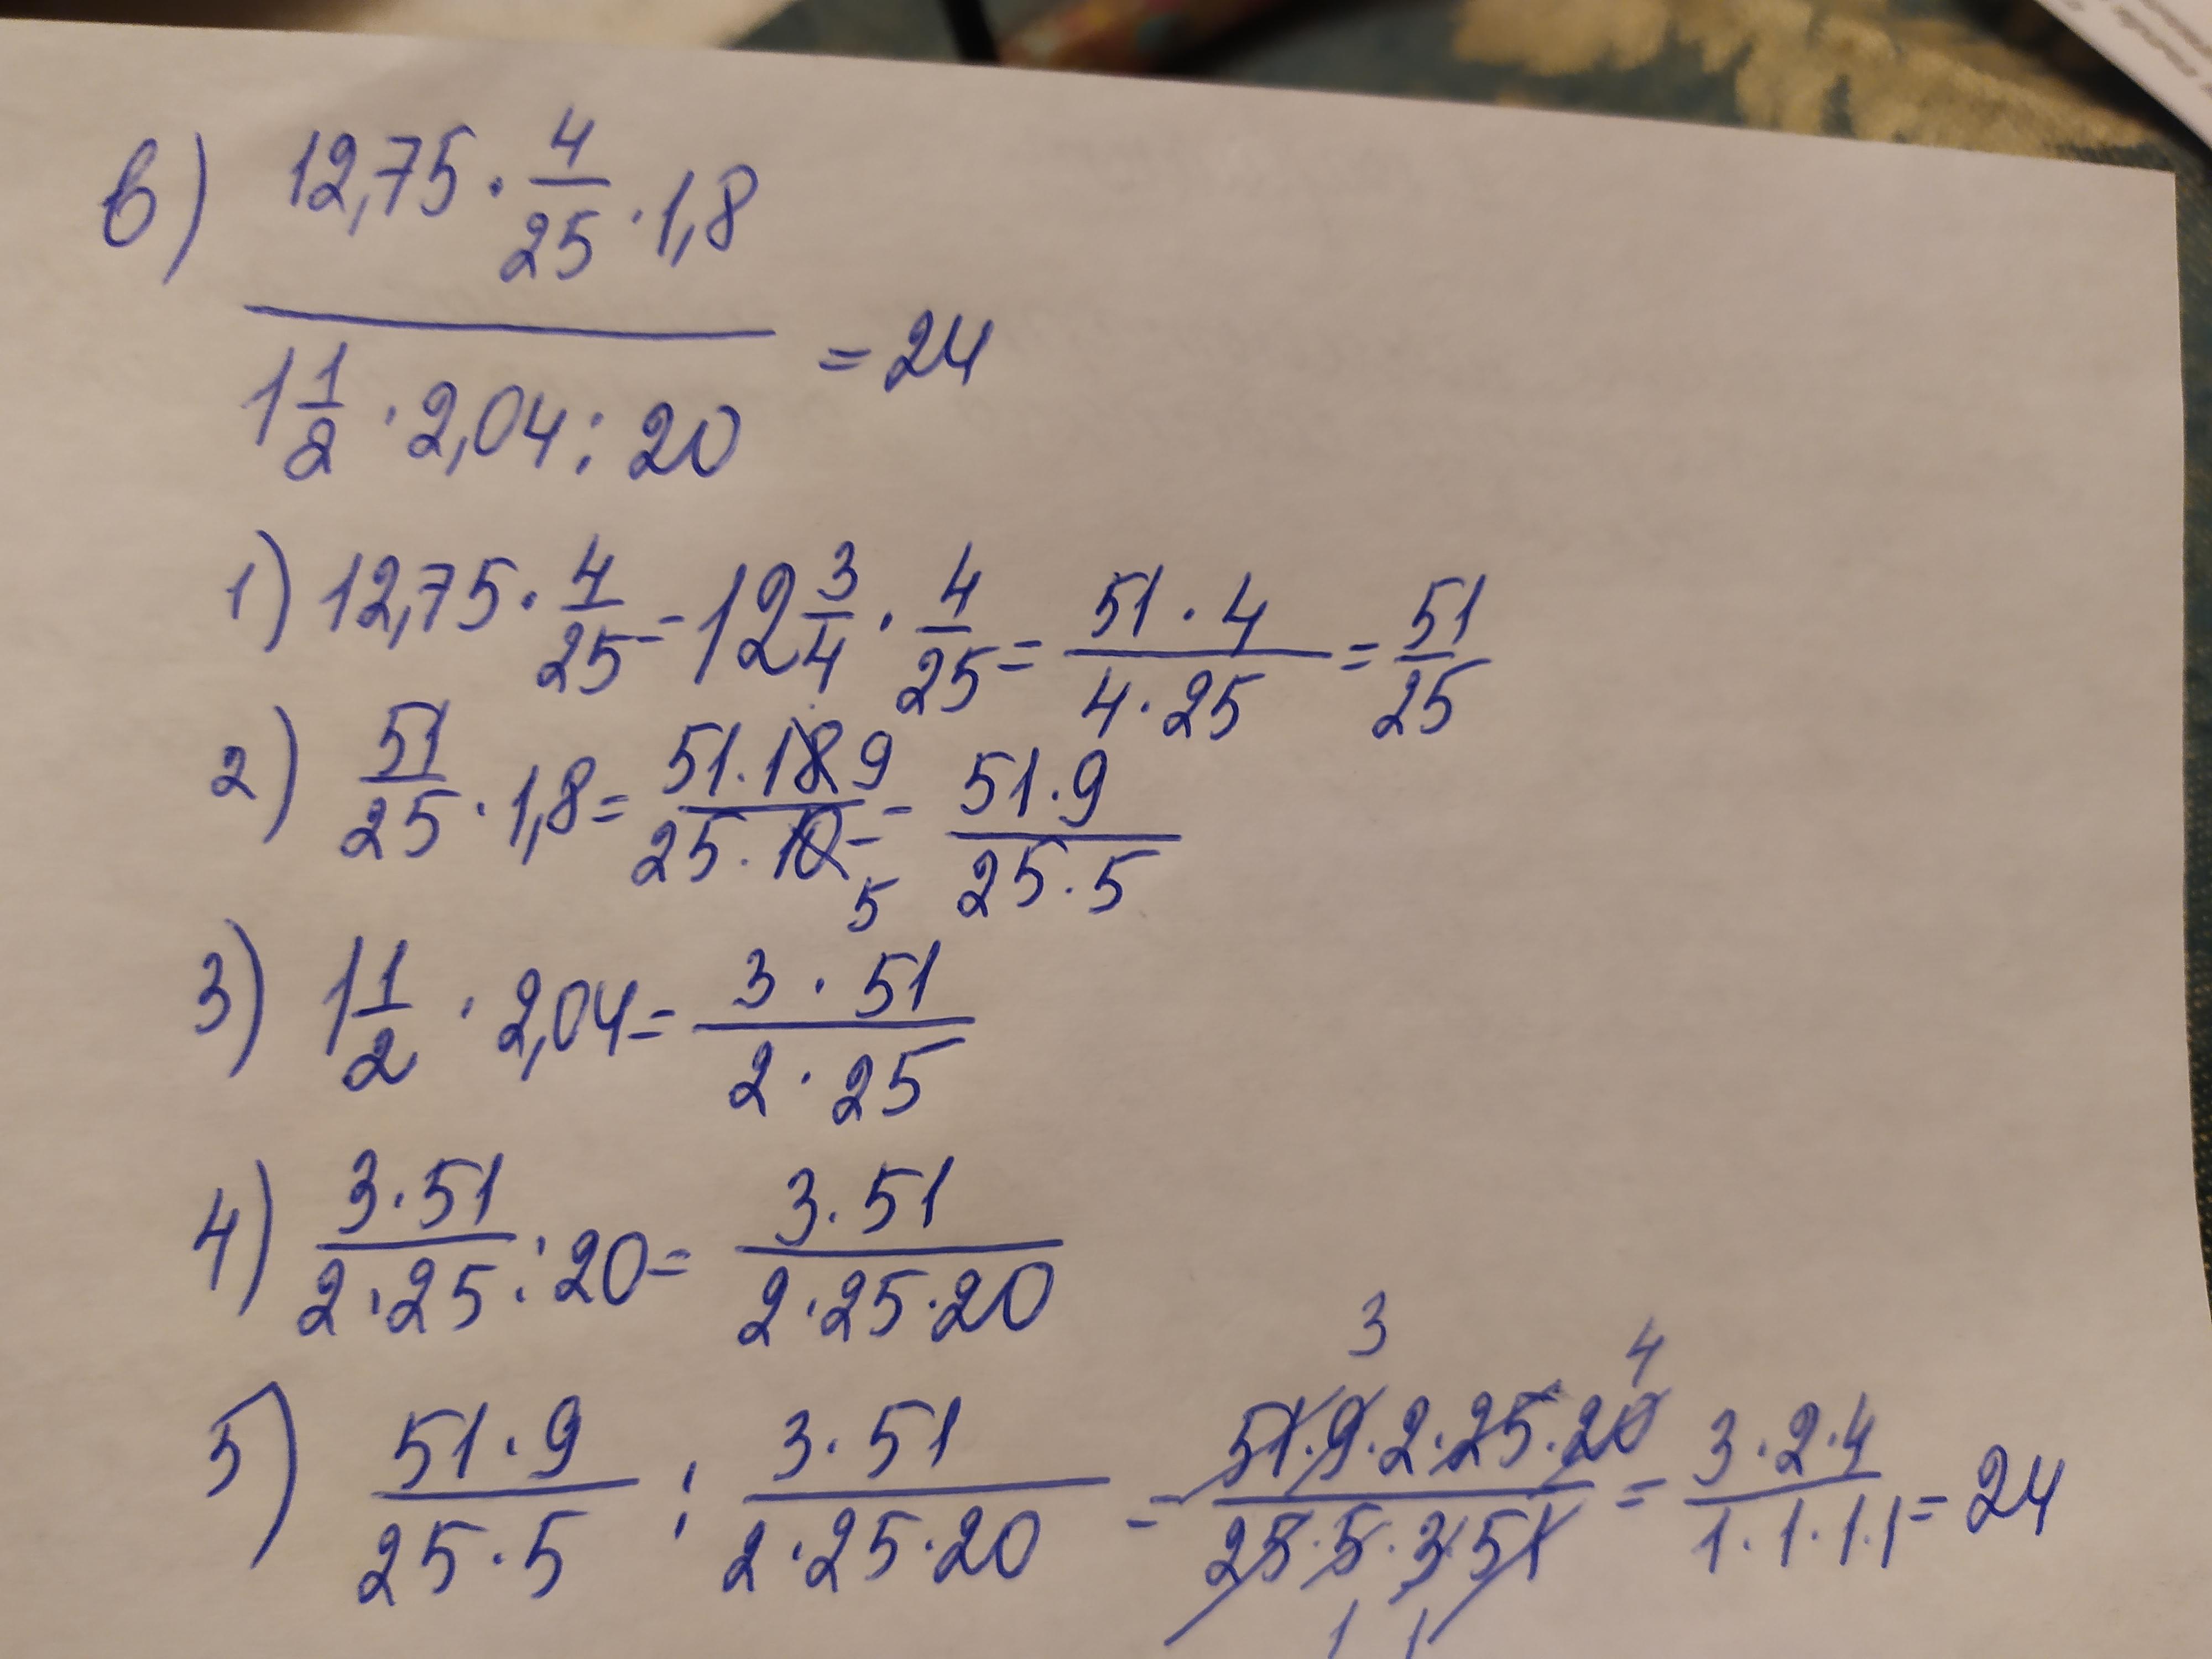 в) 12,75 · 4/25 · 1,8
1 1/2 · 2,04 : 20 = 24
1) 12,75 · 4/25 = 12 3/4 · 4/25 = 51 · 4 / 4 · 25 = 51/25
2) 51/25 · 1,8 = 51 · 18 9 / 25 · 10 5 = 51 · 9 / 25 · 5
3) 1 1/2 · 2,04 = 3 · 51 / 2 · 25
4) 3 · 51 / 2 · 25 : 20 = 3 · 51 / 2 · 25 · 20
3 4
5) 51 · 9 / 25 · 5 : 3 · 51 / 2 · 25 · 20 = 51 · 9 · 2 · 25 · 20 / 25 · 5 · 3 · 51 = 3 · 2 · 4 / 1 · 1 · 1 · 1 = 24
1 1